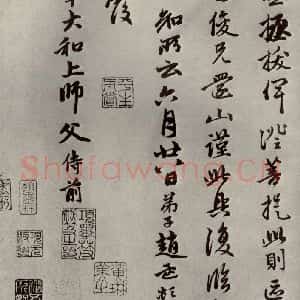 拯拔俾證菩提此則區
俊兄還山謹此具復臨
知所云六月廿八日弟子趙孟頫
覆
大和上師父侍前
Shufawang.cn